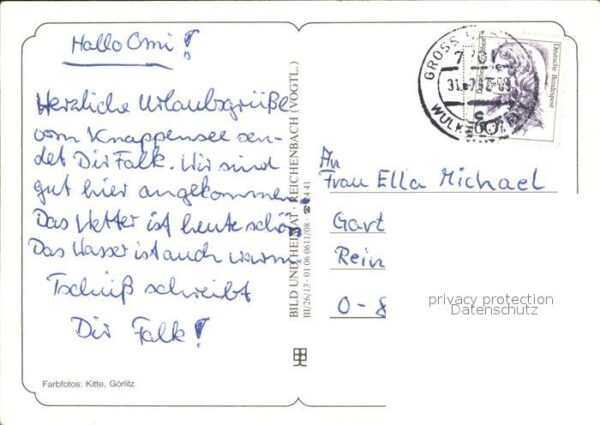 Hallo Omi!
Herzliche Urlaubsgrüße
vom Knappensee sen-
det Dir Falk. Wir sind
gut hier angekommen
Das Wetter ist heute schön
Das Wasser ist auch warm.
Tschüß schreibt
Dir Falk!
Farbfotos: Kitte, Görlitz
BILD UND HEIMAT REICHENBACH (VOGTL.)
III/26/13 - 01 06 0611/08
Deutsche Bundespost
60
GROSS
WULK
An
Frau Ella Michael
Gart
Rein
O-8
privacy protection
Datenschutz